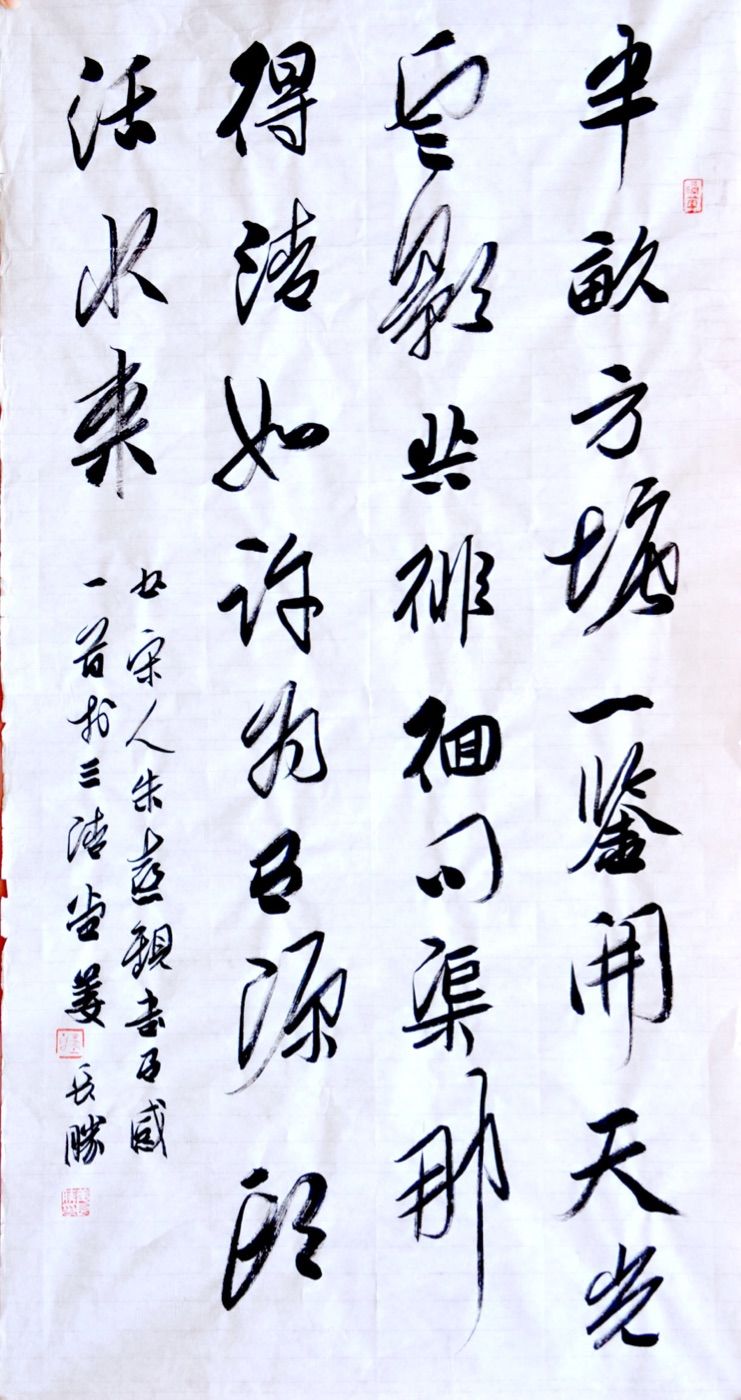 半畝方塘一鉴開天光
雲影共徘徊问渠那
得清如许为有源頭
活水来
书宋人朱熹觀书有感
一首於三清堂姜长勝